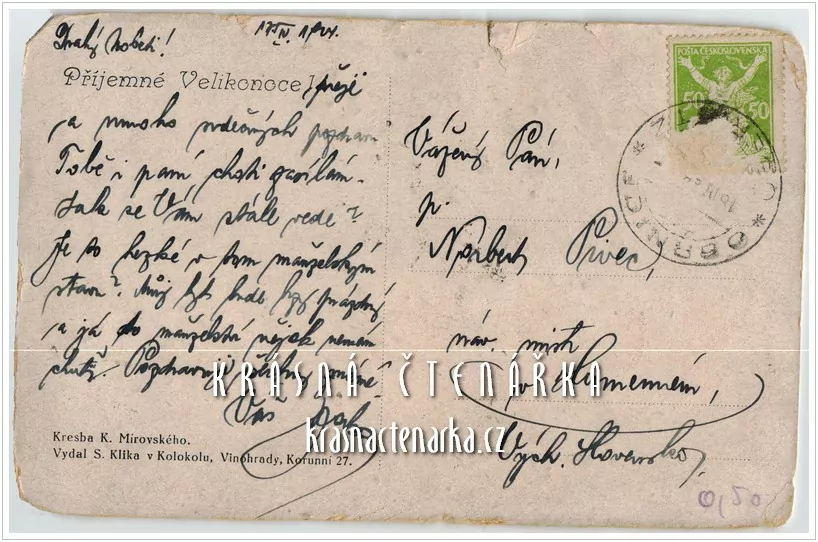 Drahý Noberti! 17/IV. 1924.
Příjemné Velikonoce! přeji
a mnoho srdečných pozdravů
Tobě i paní choti zasílám.
Jak se Vám stále vede?
Je to hezké v tom manželském
stavu? Můj byt bude brzy prázdný
a já do manželství nějak nemám
chuť. Pozdravuji všechny známé
Váš
Kresba K. Mírovského.
Vydal S. Klika v Kolokolu, Vinohrady, Korunní 27.
POŠTA ČESKOSLOVENSKÁ
50 50
OBRNICE
Vážený Pán,
p.
Norbert Pivec,
náv. mistr
v Humenném,
Vých. Slovensko,
0,50
KRÁSNÁ ČTENÁŘKA
krasnactenarka.cz